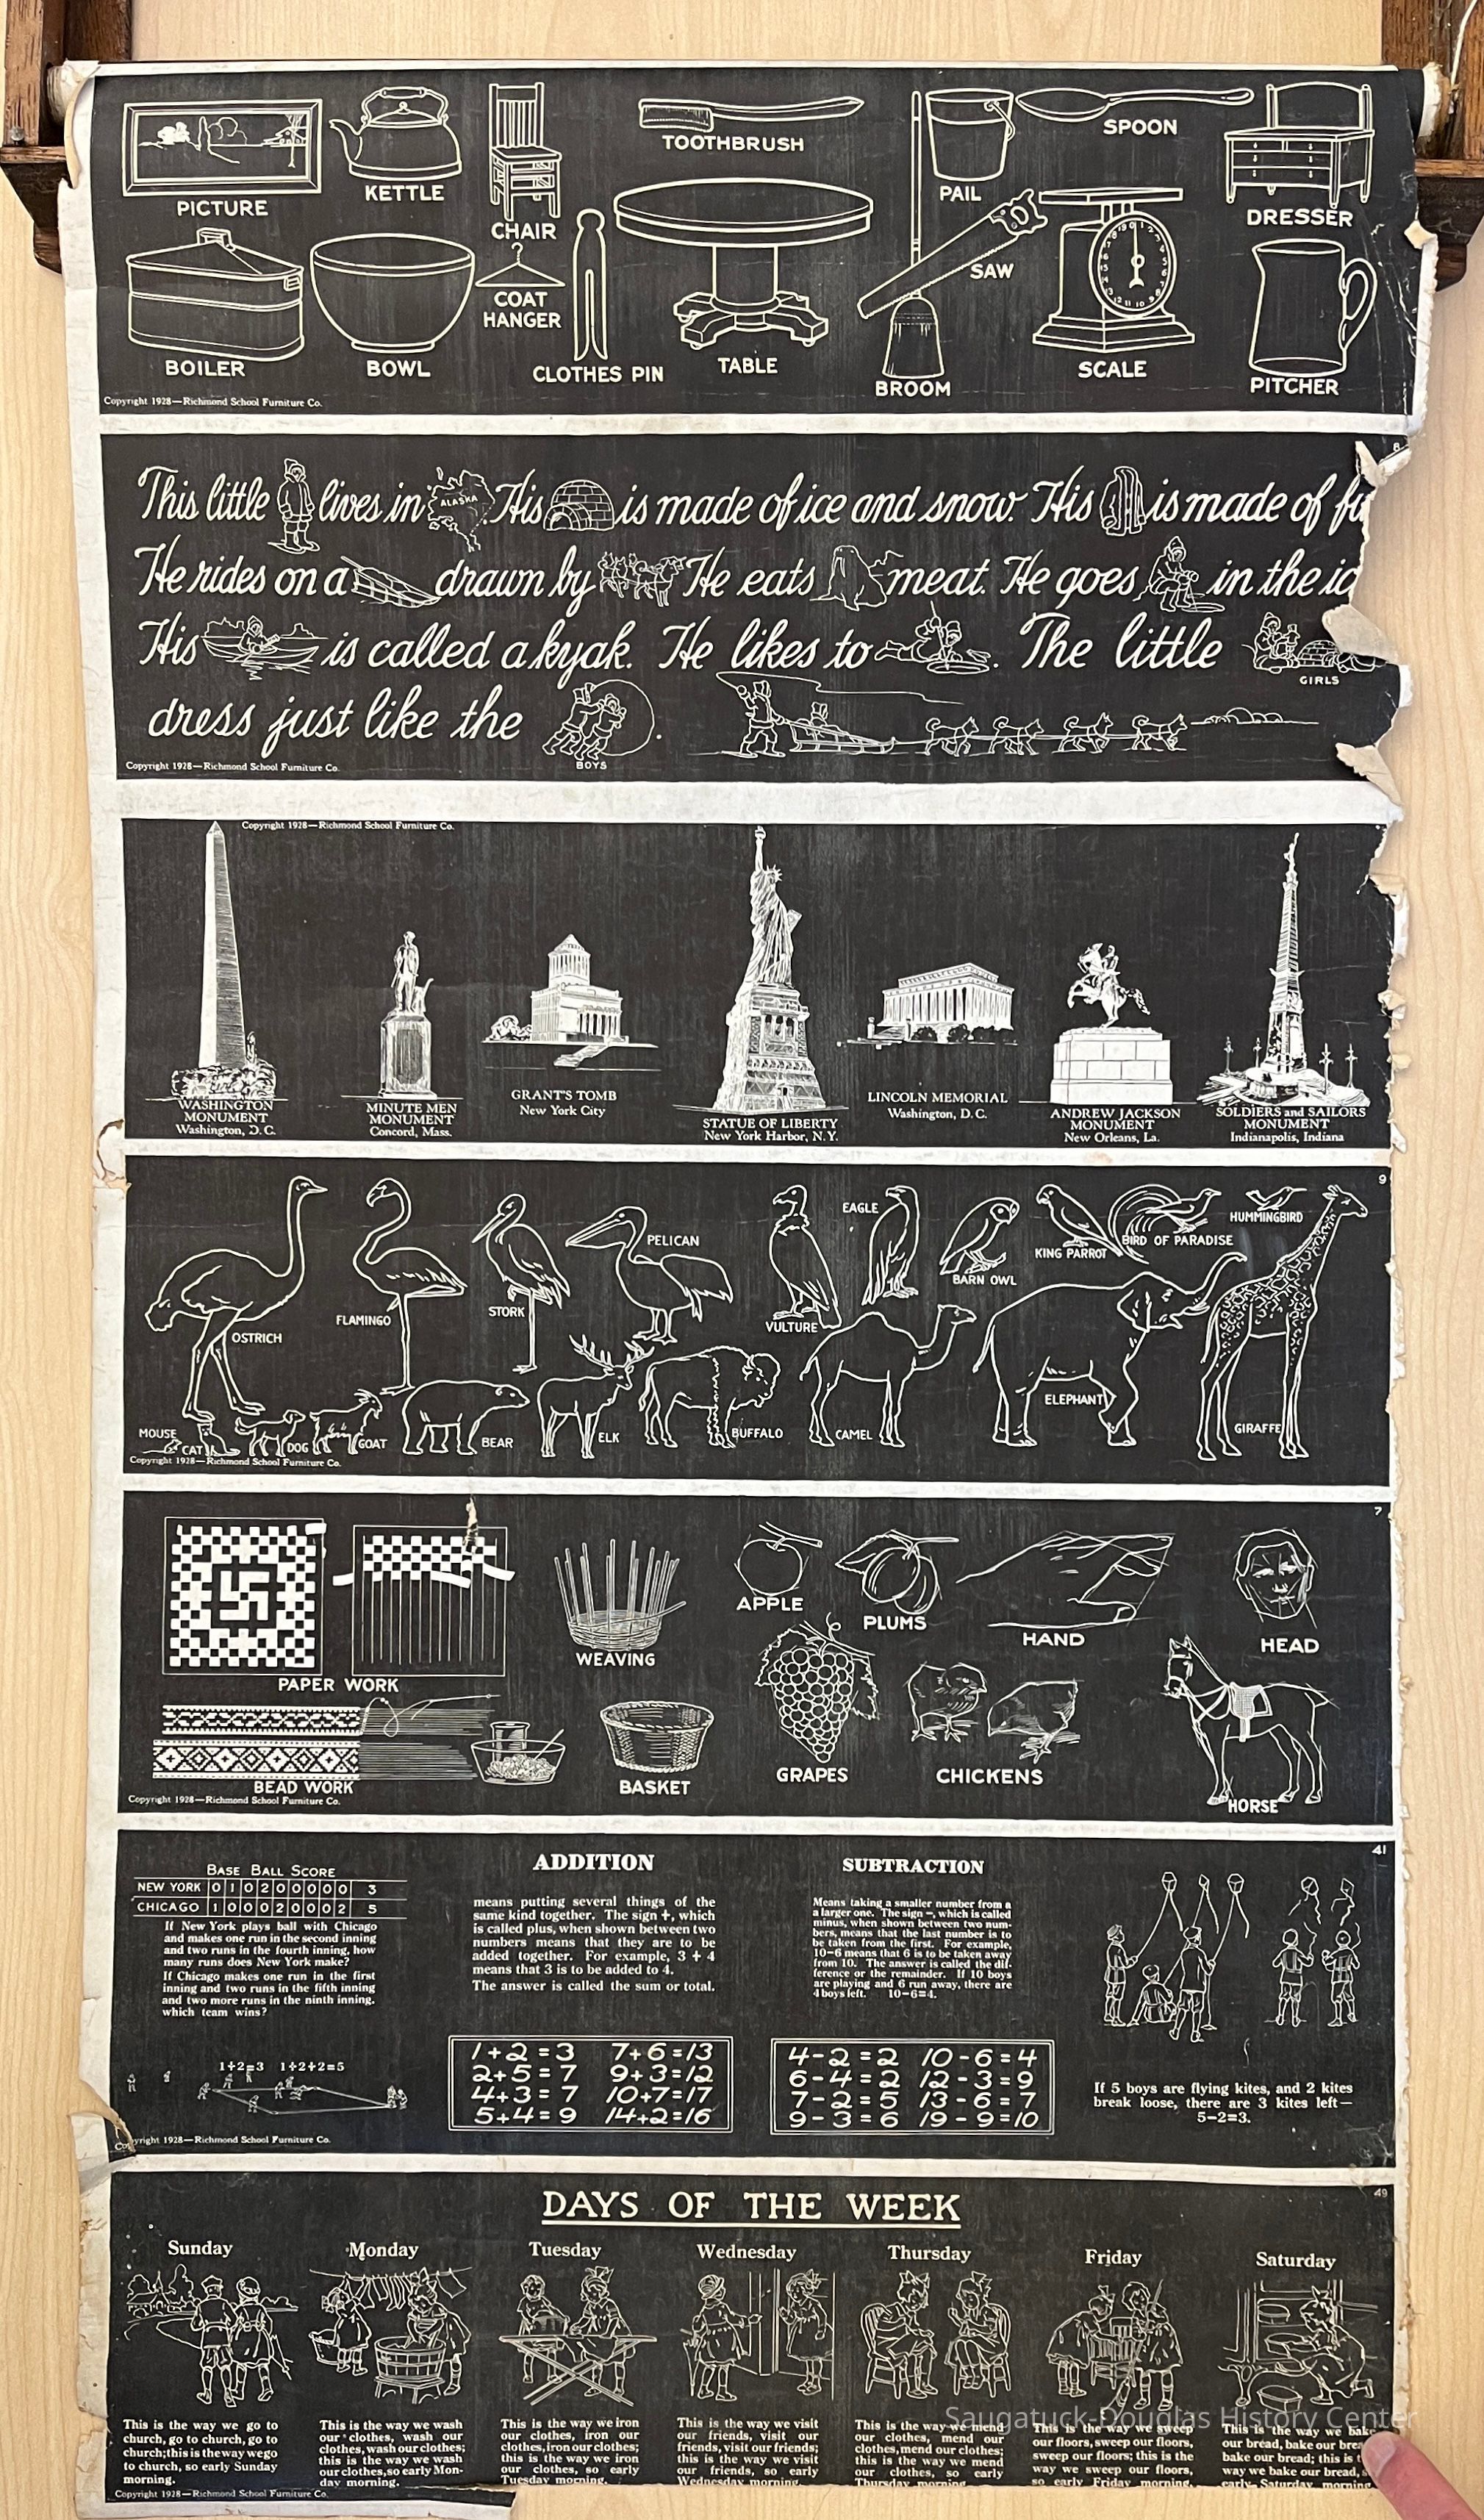 PICTURE
KETTLE
CHAIR
TOOTHBRUSH
PAIL
SPOON
DRESSER
BOILER
BOWL
COAT
HANGER
CLOTHES PIN
TABLE
SAW
BROOM
SCALE
PITCHER
Copyright 1928—Richmond School Furniture Co.
This little lives in ALASKA. His is made of ice and snow. His is made of
He rides on a drawn by He eats meat. He goes in the
His is called a kyak. He likes to . The little
GIRLS
dress just like the .
BOYS
Copyright 1928—Richmond School Furniture Co.
Copyright 1928—Richmond School Furniture Co.
WASHINGTON
MONUMENT
Washington, D.C.
MINUTE MEN
MONUMENT
Concord, Mass.
GRANT'S TOMB
New York City
STATUE OF LIBERTY
New York Harbor, N.Y.
LINCOLN MEMORIAL
Washington, D.C.
ANDREW JACKSON
MONUMENT
New Orleans, La.
SOLDIERS and SAILORS
MONUMENT
Indianapolis, Indiana
9
OSTRICH
FLAMINGO
STORK
PELICAN
VULTURE
EAGLE
BARN OWL
KING PARROT
BIRD OF PARADISE
HUMMINGBIRD
MOUSE
CAT
DOG
GOAT
BEAR
ELK
BUFFALO
CAMEL
ELEPHANT
GIRAFFE
Copyright 1928—Richmond School Furniture Co.
7
PAPER WORK
WEAVING
APPLE
PLUMS
HAND
HEAD
BEAD WORK
BASKET
GRAPES
CHICKENS
HORSE
Copyright 1928—Richmond School Furniture Co.
41
BASE BALL SCORE
NEW YORK 0 1 0 2 0 0 0 0 0 3
CHICAGO 1 0 0 0 2 0 0 0 2 5
If New York plays ball with Chicago
and makes one run in the second inning
and two runs in the fourth inning, how
many runs does New York make?
If Chicago makes one run in the first
inning and two runs in the fifth inning
and two more runs in the ninth inning.
which team wins?
1+2=3 1+2+2=5
Copyright 1928—Richmond School Furniture Co.
ADDITION
means putting several things of the
same kind together. The sign +, which
is called plus, when shown between two
numbers means that they are to be
added together. For example, 3 + 4
means that 3 is to be added to 4.
The answer is called the sum or total.
1+2=3 7+6=13
2+5=7 9+3=12
4+3=7 10+7=17
5+4=9 14+2=16
SUBTRACTION
Means taking a smaller number from a
a larger one. The sign −, which is called
minus, when shown between two num-
bers, means that the last number is to
be taken from the first. For example,
10−6 means that 6 is to be taken away
from 10. The answer is called the dif-
ference or the remainder. If 10 boys
are playing and 6 run away, there are
4 boys left. 10−6=4.
4−2=2 10−6=4
6−4=2 12−3=9
7−2=5 13−6=7
9−3=6 19−9=10
If 5 boys are flying kites, and 2 kites
break loose, there are 3 kites left—
5−2=3.
49
DAYS OF THE WEEK
Sunday
Monday
Tuesday
Wednesday
Thursday
Friday
Saturday
This is the way we go to
church, go to church, go to
church; this is the way we go
to church, so early Sunday
morning.
This is the way we wash
our clothes, wash our
clothes, wash our clothes;
this is the way we wash
our clothes, so early Mon-
day morning.
This is the way we iron
our clothes, iron our
clothes, iron our clothes;
this is the way we iron
our clothes, so early
Tuesday morning.
This is the way we visit
our friends, visit our
friends, visit our friends;
this is the way we visit
our friends, so early
Wednesday morning.
This is the way we mend
our clothes, mend our
clothes, mend our clothes;
this is the way we mend
our clothes, so early
Thursday morning.
This is the way we sweep
our floors, sweep our floors,
sweep our floors; this is the
way we sweep our floors,
so early Friday morning.
This is the way we bake
our bread, bake our
bake our bread; this is
way we bake our bread,
early Saturday morning
Copyright 1928—Richmond School Furniture Co.
Saugatuck-Douglas History Center